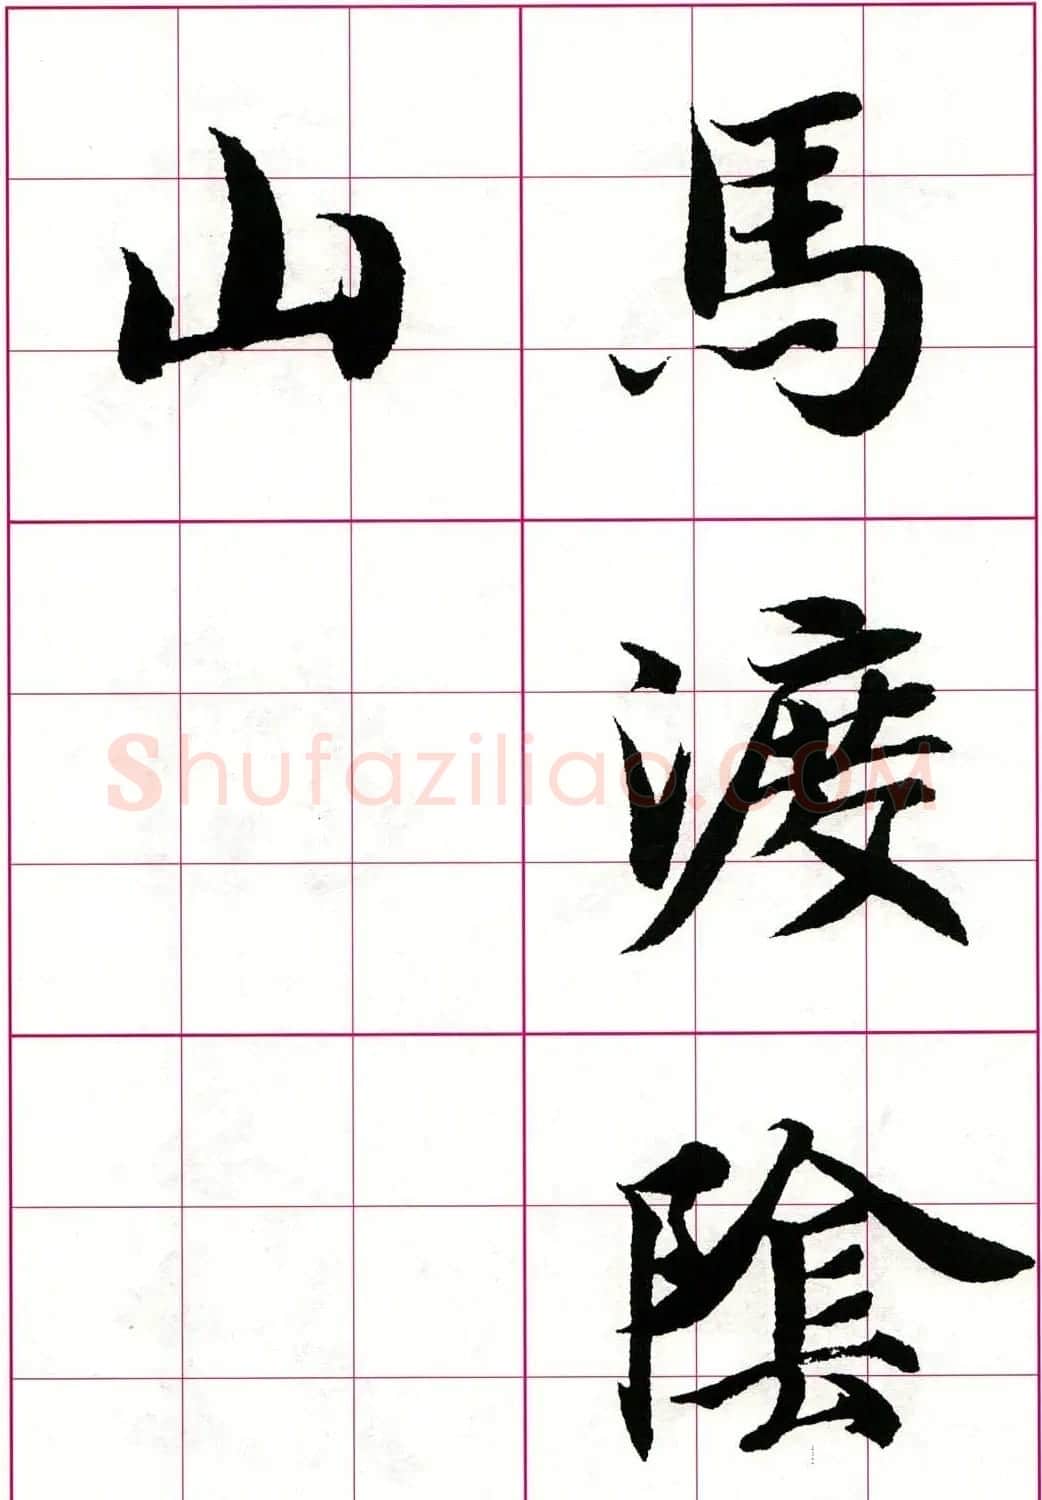 馬渡陰
山
Shufaziliao.COM